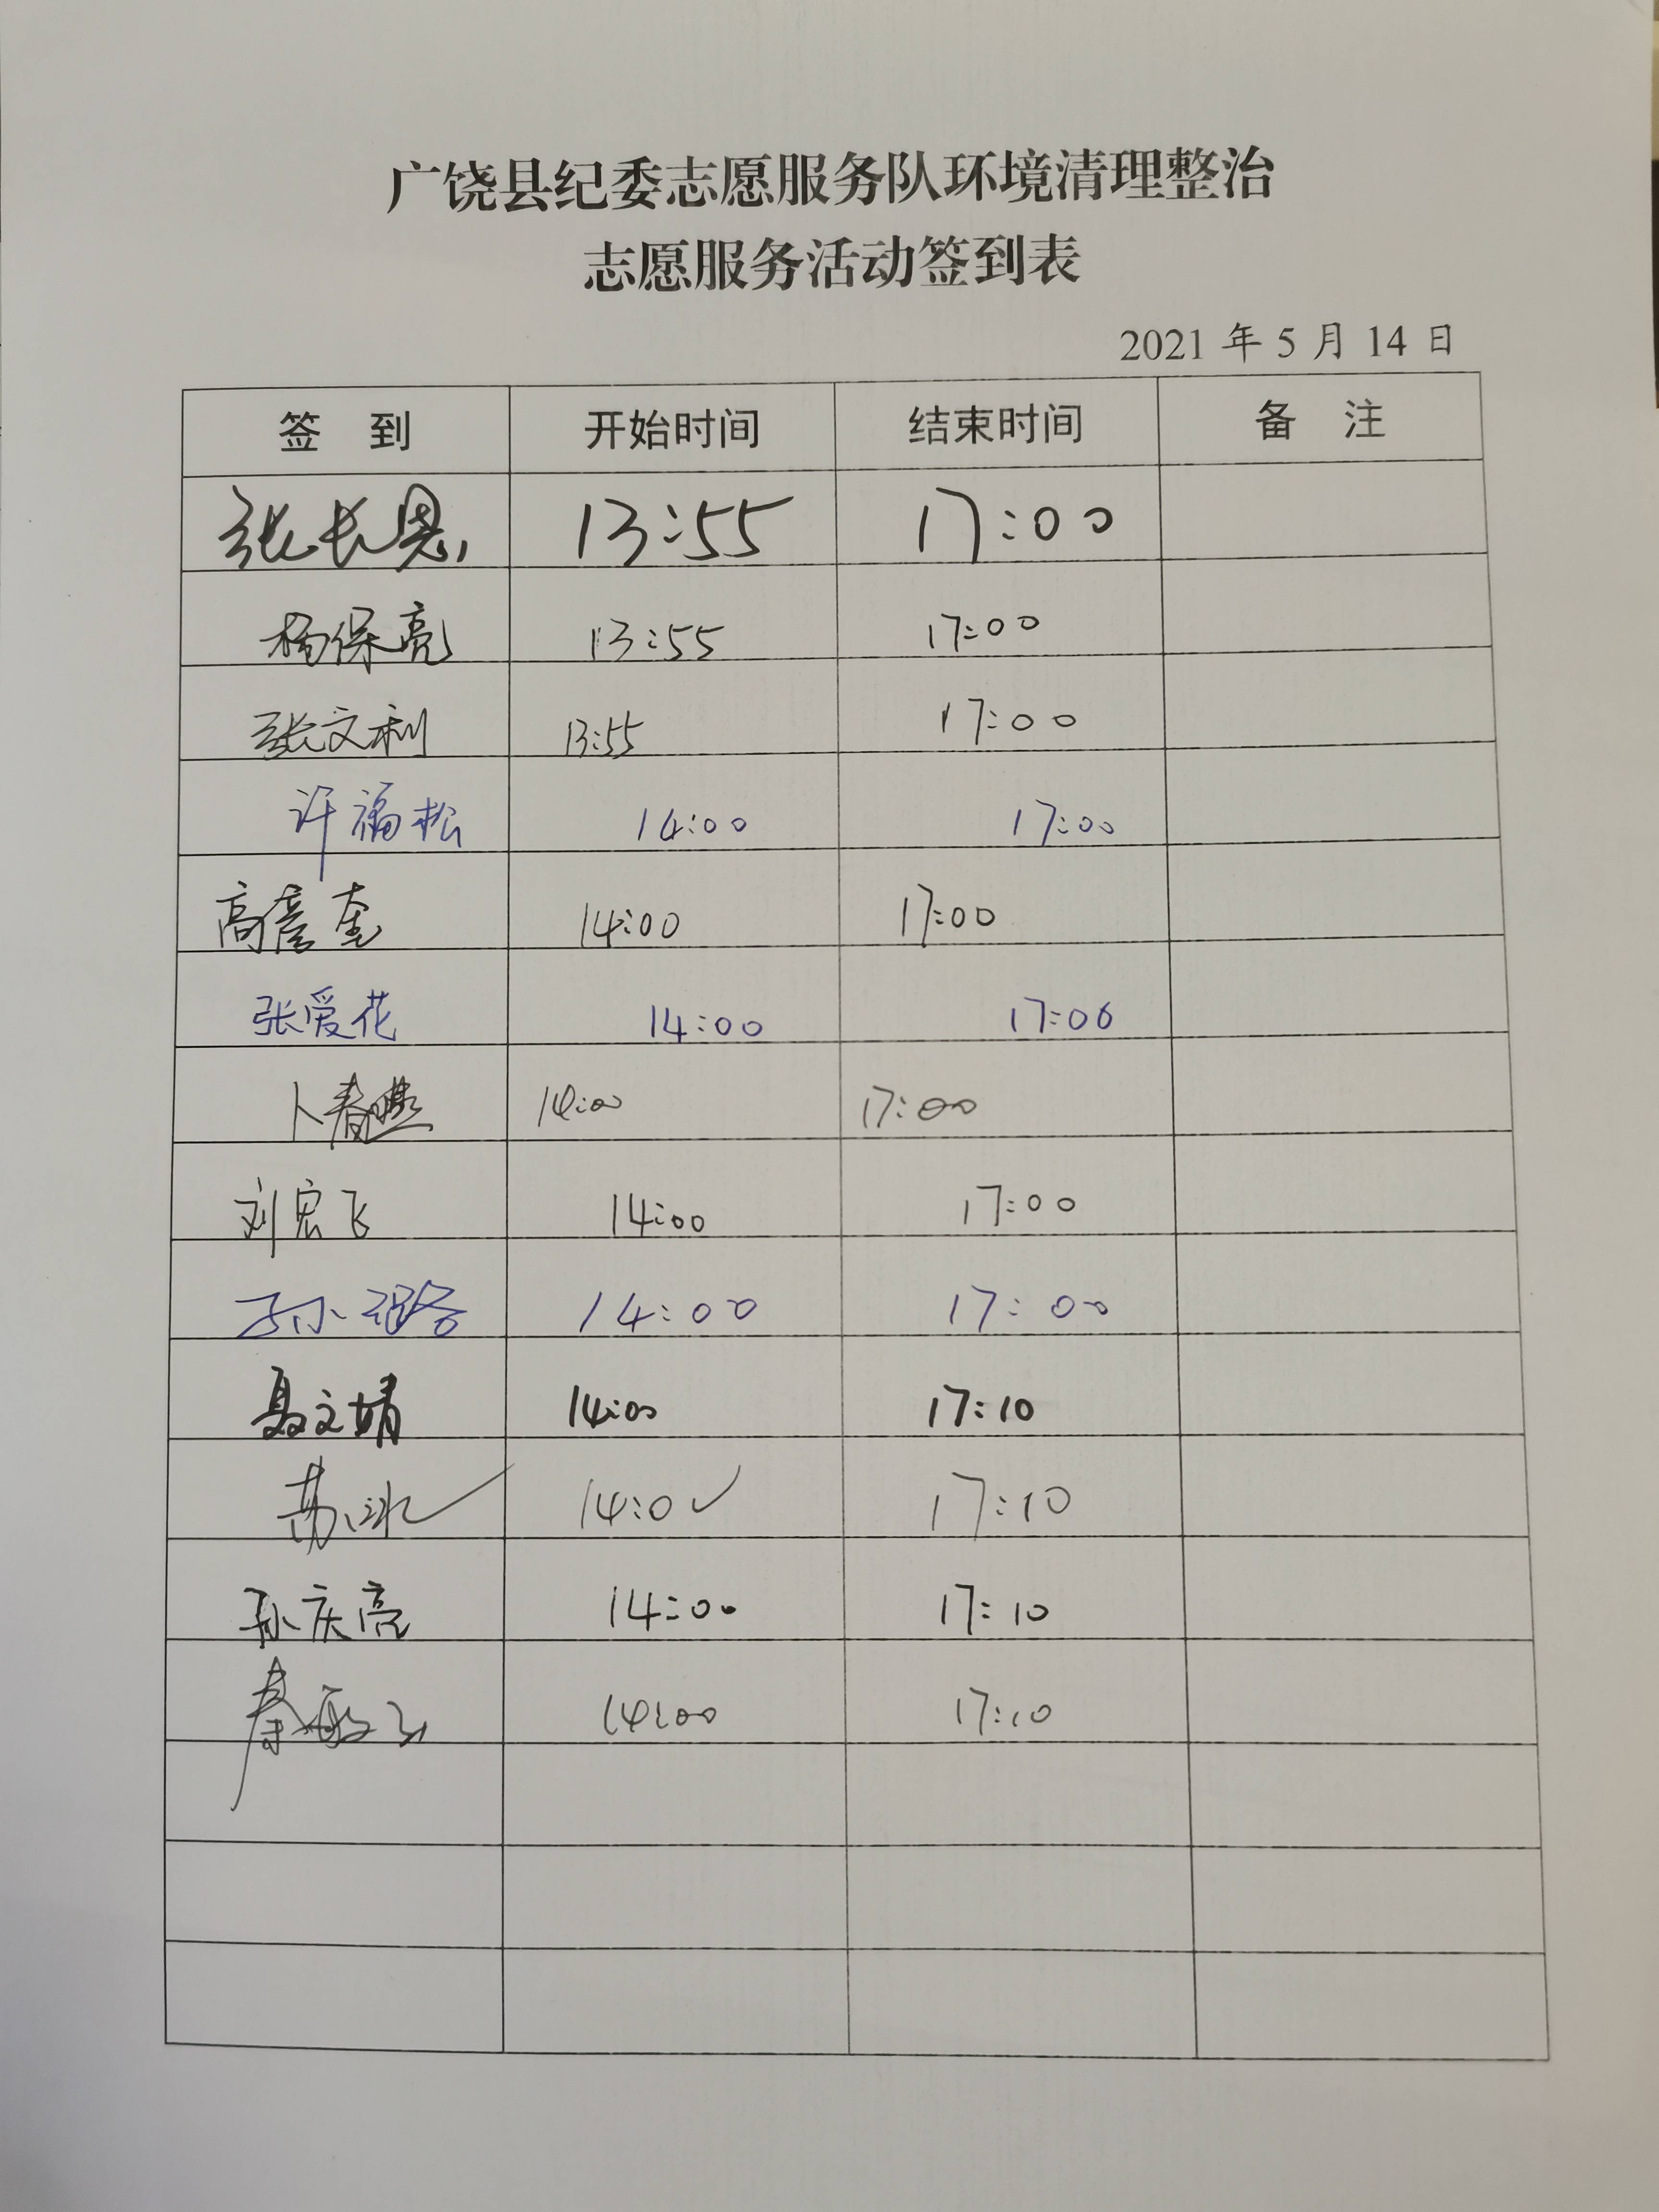 广饶县纪委志愿服务队环境清理整治
志愿服务活动签到表
2021年5月14日
签 到 开始时间 结束时间 备 注
张长恩 13:55 17:00
杨保亮 13:55 17:00
张文利 13:55 17:00
许福松 14:00 17:00
高彦奎 14:00 17:00
张爱花 14:00 17:00
卜春燕 14:00 17:00
刘宏飞 14:00 17:00
孙小璐 14:00 17:00
聂文婧 14:00 17:10
苏冰 14:00 17:10
孙庆亮 14:00 17:10
秦 14:00 17:10